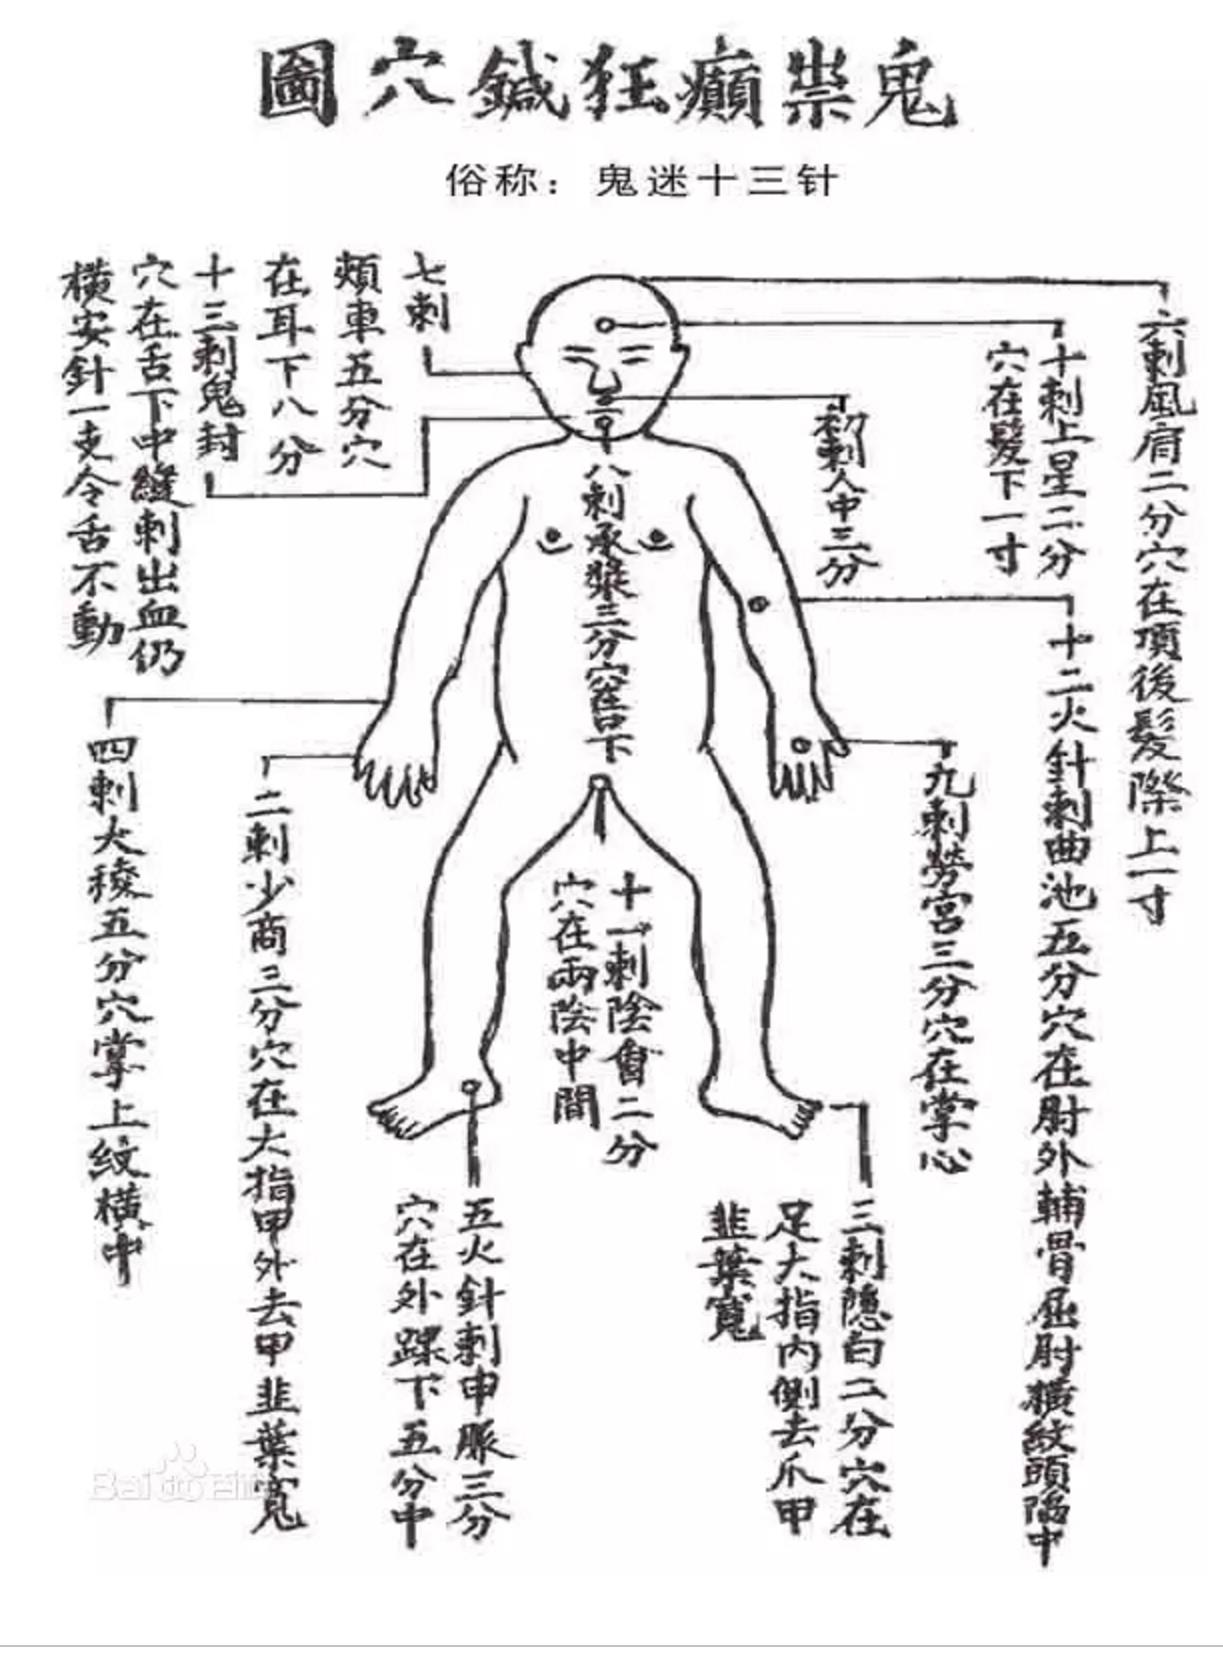 鬼祟癲狂鍼穴圖
俗称：鬼迷十三针
六刺風府二分穴在項後髮際上一寸
十刺上星二分
穴在髮下一寸
初刺人中三分
七刺
頰車五分穴
在耳下八分
十三刺鬼封
穴在舌下中縫刺出血仍
橫安針一支令舌不動
八刺承漿三分穴在口下
十二火針刺曲池五分穴在肘外輔骨屈肘橫紋頭陷中
九刺勞宮三分穴在掌心
四刺大稜五分穴掌上紋橫中
二刺少商三分穴在大指甲外去甲韭葉寬
十一刺陰會二分
穴在兩陰中間
三刺隱白二分穴在
足大指內側去爪甲
韭葉寬
五火針刺申脈三分
穴在外踝下五分中
Bai百科